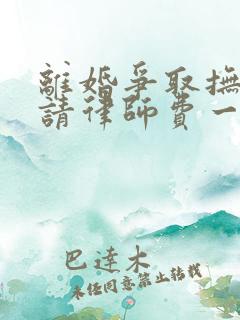 離婚爭取撫
請律師費一
巴達木
未經同意禁止轉載